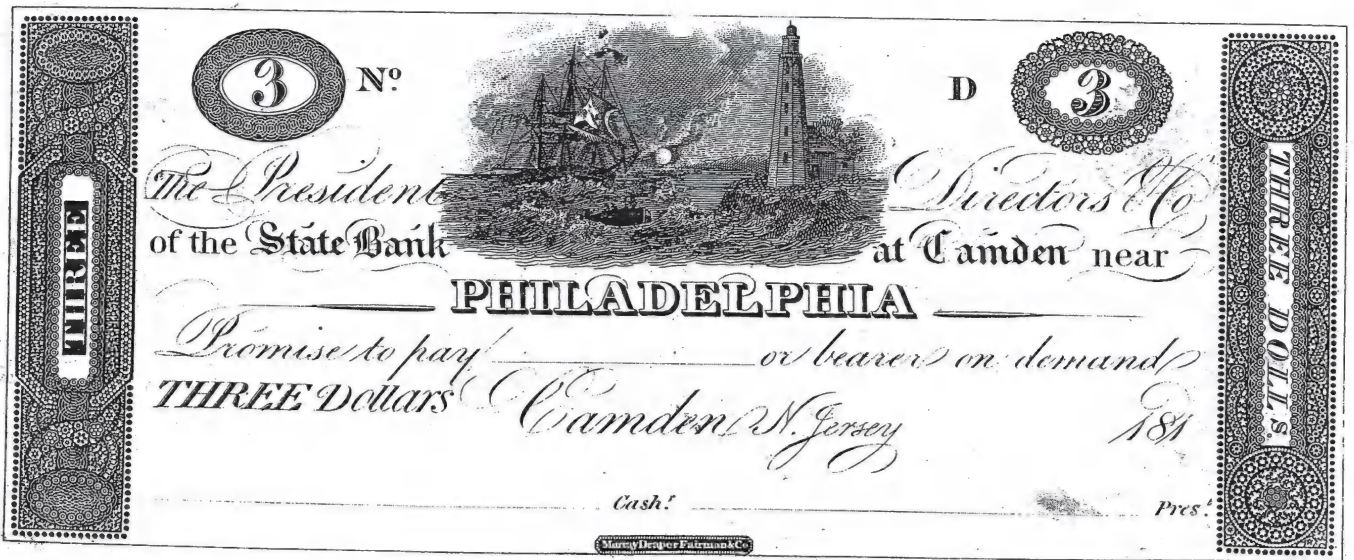 3 Nº D 3
THREE
The President Directors & Co
of the State Bank at Camden near
PHILADELPHIA
Promise to pay or bearer on demand
THREE Dollars Camden N. Jersey 181
Cash.r Pres.t
Murray Draper Fairman & Co
THREE DOLLS.